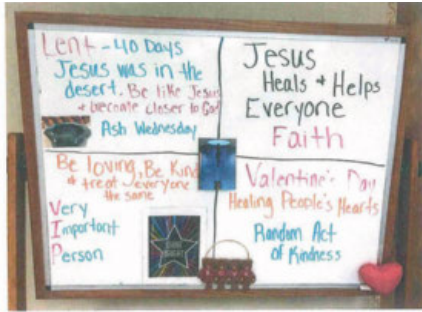 Lent - 40 Days
Jesus was in the
desert. Be like Jesus
& become closer to God
Ash Wednesday
Jesus
Heals & Helps
Everyone
Faith
Be loving, Be Kind
& treat everyone
the same
Very
Important
Person
Valentine's Day
Healing People's Hearts
Random Act
of Kindness